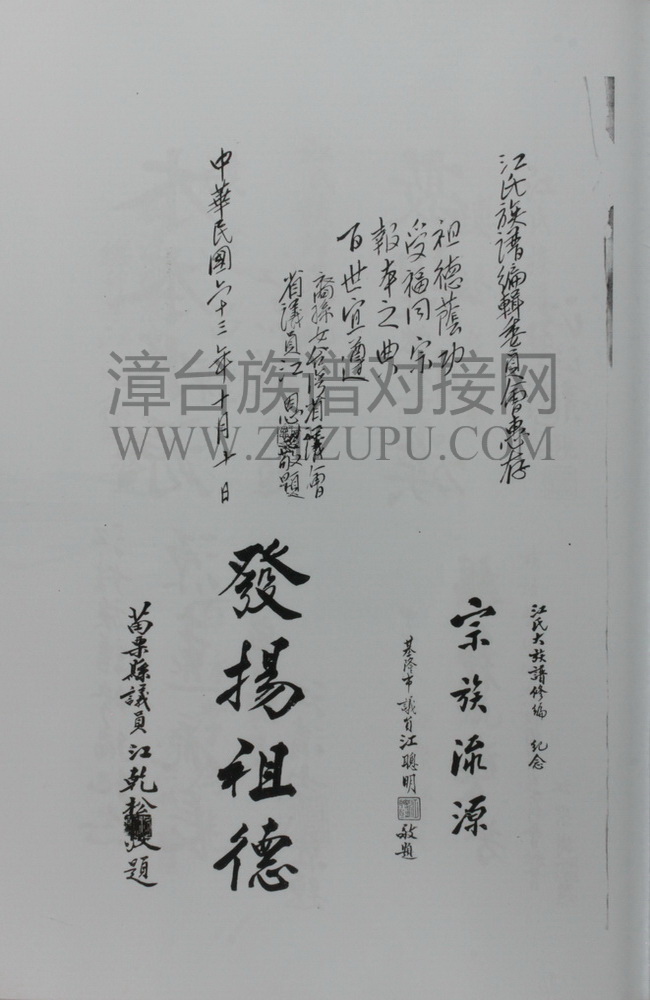 江氏族譜編輯委員會惠存
祖德蔭功
受福同宗
報本之典
百世宜遵
裔孫女台灣省議會
省議員江恩敬題
中華民國六十三年十月十日
漳台族谱对接网
WWW.ZTZUPU.COM
江氏大族譜修編 紀念
宗族流源
基隆市議員江聰明 敬題
發揚祖德
苗栗縣議員江乾松敬題